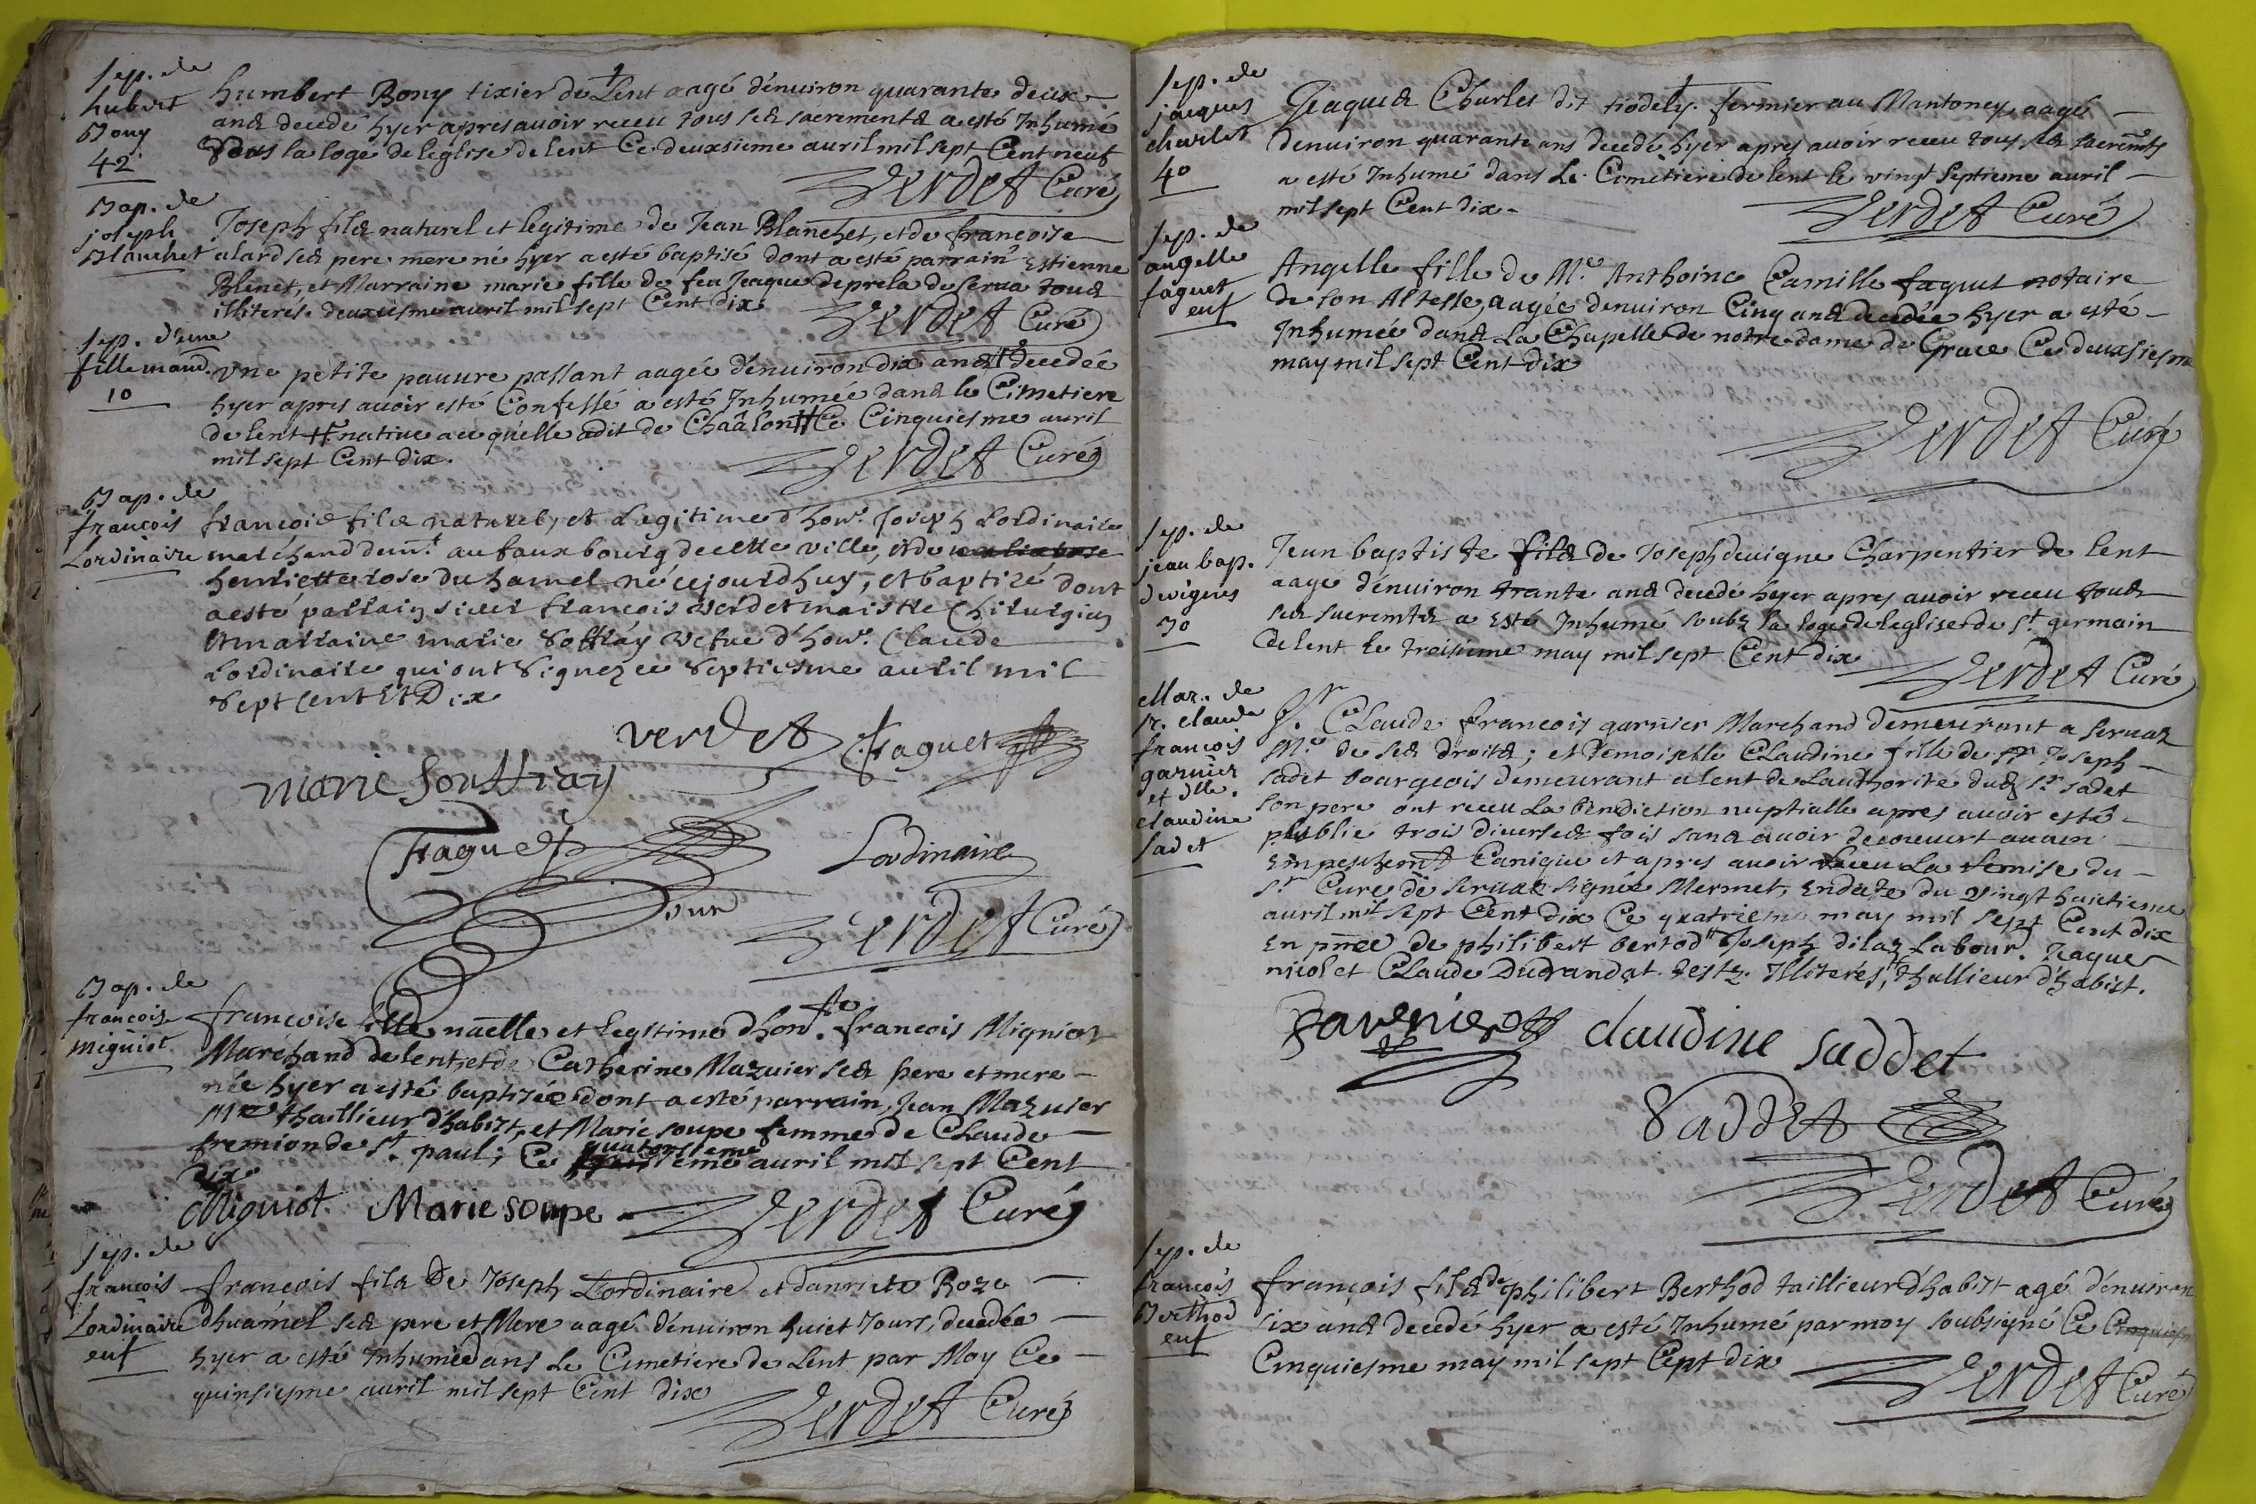 sep. de
hubert
Bony
42
humbert Bony tixier de Lent aagé d'enuiron quarante deux
ans decedé hyer apres auoir receu tous ses sacrements a esté Inhumé
Sous la loge de leglise de lent Ce deuxsieme auril mil sept Cent neuf
Verdet Curé
Bap. de
joseph
Blanchet
Joseph fils naturel et legitime de Jean Blanchet, et de francoise
alard ses pere mere né hyer a esté baptisé dont a esté parrain Estienne
Blenet, et Marraine marie fille de feu Jeaque deprela de Serua tous
illiterés. deuxsiesme auril mil sept Cent dix
Verdet Curé
sep. d'eune
fille mand.
10
vne petite pauure passant aagée d'enuiron dix ans decedée
hyer apres auoir esté Confessé a esté Inhumée dans le Cimetiere
de lent # natiue a ce qu'elle adit de Chââlon # Ce Cinquiesme auril
mil sept Cent dix.
Verdet Curé
Bap. de
francois
Lordinaire
francois fils naturel, et Legitime d'hon.e Joseph Lordinaire
marchand dem.t au faux bourg de cette ville, et de
henriette rose du hamel né cejourdhuy, et baptizé dont
a esté parrain sieur francois verdet maistre Chirurgien
et marraine marie Souffray vefue d'hon.e Claude
Lordinaire qui ont Signez ce Septiesme auril mil
Sept Cent Et Dix
verdet fraguet
marie Souffray
Fraguet Lordinaire
Verdet Curé
Bap. de
francoise
miguiot
francoise fille nãelle et legitime d'hon.e francois Miguiot
Marchand de lent et de Catherine Mazuier ses pere et mere
née hyer a esté baptizée dont a esté parrain Jean Mazuier
M.re thaillieur d'habist, et Marie soupe femme de Claude
fremion de S.t paul; Ce quatorsieme auril mil sept Cent
dix.
Miguiot. Marie soupe Verdet Curé
Sep. de
francois
Lordinaire
enf
francois fils De Joseph Lordinaire et danriete Roze
dhuámel ses pere et Mere aagé d'enuiron huict Jours, decedée
hyer a esté Inhumé dans Le Cimetiere de Lent par Moy Ce
quinsiesme auril mil sept Cent dix
Verdet Curé
Sep. de
jacques
charles
40
Jeaques Charles dit tiodely. fermier au Mantoney aagé
denuiron quarante ans decedé hyer apres auoir receu tous ses sacremts
a esté Inhumé dans Le Cimetiere de lent le vingt septieme auril
mil sept Cent dix.
Verdet Curé
sep. de
angelle
faguet
enf
Angelle fille de M.e Anthoine Camille faguet notaire
de son Altesse, aagée denuiron Cinq ans decedée hyer a esté
Inhumée dans La Chapelle de notre dame de Grace Ce deuxsiesme
may mil sept Cent dix
Verdet Curé
Sep. de
jean bap.
devignes
30
Jean baptiste fils de Joseph deuigne Charpentier de lent
aage d'enuiron trante ans decedé hyer apres auoir receu tous
ses sacremts a Esté Inhumé soubz la loge de leglise de S.t germain
de lent le treisieme may mil sept Cent dix
Verdet Curé
Mar. de
sr. claude
francois
garnier
et dlle.
claudine
sadet
S.r Claude francois garnier Marchand demeurant a seruaz
M.e de ses droits; et Demoiselle Claudine fille de Sr Joseph
sadet bourgeois demeurant a lent de Lauthorité dud. Sr sadet
son pere ont receu La benediction nuptialle apres auoir esté
publié trois diuerses fois sans auoir decouuert aucun
Empeschemt Canique et apres auoir receu La Remise du
Sr Curé de seruas signée Mermet, En date du vingt huictieme
auril mil sept Cent dix Ce quatriesme may mil sept Cent dix
En pñce de philibert bertod # Joseph dilaz Labour. Jeaque
nicol et Claude Dugrandat. testz. Illiterés, # thallieur d'habist.
Garnier claudine saddet
Saddet
Verdet Curé
Sep. de
francois
Berthod
enf
françois fils de philibert Berthod taillieur d'habist agé d'enuiron
six ans decedé hyer a esté Inhumé par moy soubsigné Ce
Cinquiesme may mil sept Cent dix
Verdet Curé